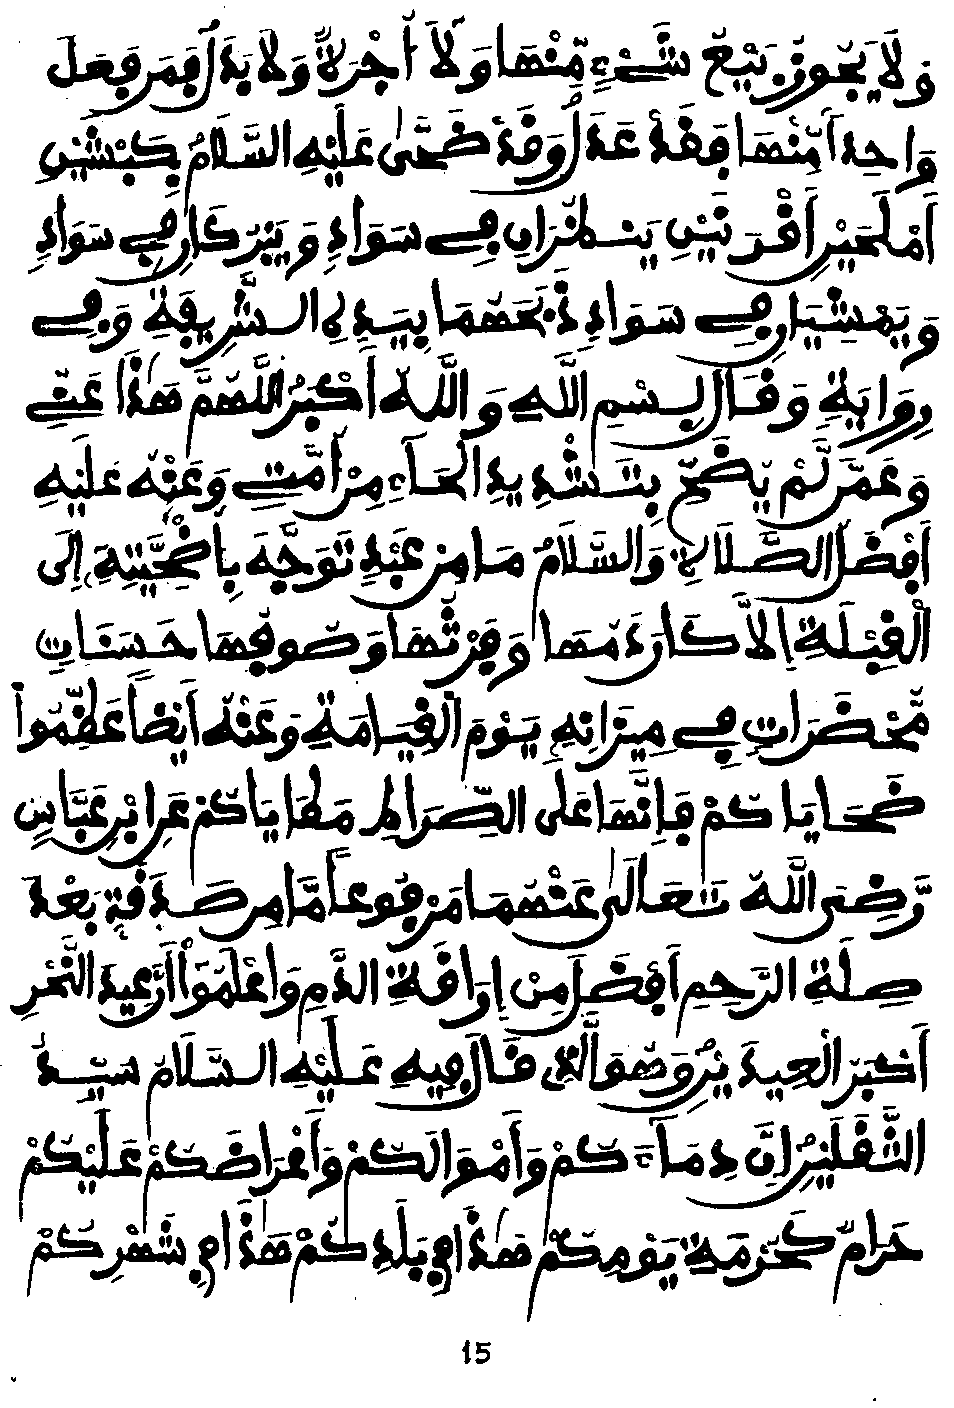 وَلَا يَجُوزُ بَيْعُ شَيْءٍ مِّنْهَا وَلَا أُجْرَةً وَلَا بَدَلٌ فَمَن فَعَلَ
وَاحِدَةً مِّنْهَا فَقَدْ عَدَلَ وَقَدْ ضَحَّى عَلَيْهِ السَّلَامُ بِكَبْشَيْنِ
أَمْلَحَيْنِ أَقْرَنَيْنِ يَنظُرَانِ فِي سَوَادٍ وَيَبْرُكَانِ فِي سَوَادٍ
وَيَمْشِيَانِ فِي سَوَادٍ ذَبَحَهُمَا بِيَدِهِ الشَّرِيفَةِ وَفِي
رِوَايَةٍ وَقَالَ بِسْمِ اللَّهِ وَاللَّهُ أَكْبَرُ اللَّهُمَّ هَذَا عَنِّي
وَعَمَّن لَّمْ يُضَحِّ بِتَشْدِيدِ الْحَاءِ مِنْ أُمَّتِي وَعَنْهُ عَلَيْهِ
أَفْضَلُ الصَّلَاةِ وَالسَّلَامُ مَا مِنْ عَبْدٍ تَوَجَّهَ بِأُضْحِيَّتِهِ إِلَى
الْقِبْلَةِ إِلَّا كَانَ دَمُهَا وَفَرْثُهَا وَصُوفُهَا حَسَنَاتٍ
مُّحْضَرَاتٍ فِي مِيزَانِهِ يَوْمَ الْقِيَامَةِ وَعَنْهُ أَيْضًا عَظِّمُوا
ضَحَايَاكُمْ فَإِنَّهَا عَلَى الصِّرَاطِ مَطَايَاكُمْ عَنِ ابْنِ عَبَّاسٍ
رَّضِيَ اللَّهُ تَعَالَى عَنْهُمَا مَرْفُوعًا مَّا مِن صَدَقَةٍ بَعْدَ
صِلَةِ الرَّحِمِ أَفْضَلُ مِنْ إِرَاقَةِ الدَّمِ وَاعْلَمُوا أَنَّ عِيدَ النَّحْرِ
أَكْبَرُ الْعِيدَيْنِ وَهُوَ الَّذِي قَالَ فِيهِ عَلَيْهِ السَّلَامُ سَيِّدُ
الثَّقَلَيْنِ إِنَّ دِمَاءَكُمْ وَأَمْوَالَكُمْ وَأَعْرَاضَكُمْ عَلَيْكُمْ
حَرَامٌ كَحُرْمَةِ يَوْمِكُمْ هَذَا فِي بَلَدِكُمْ هَذَا فِي شَهْرِكُمْ
15